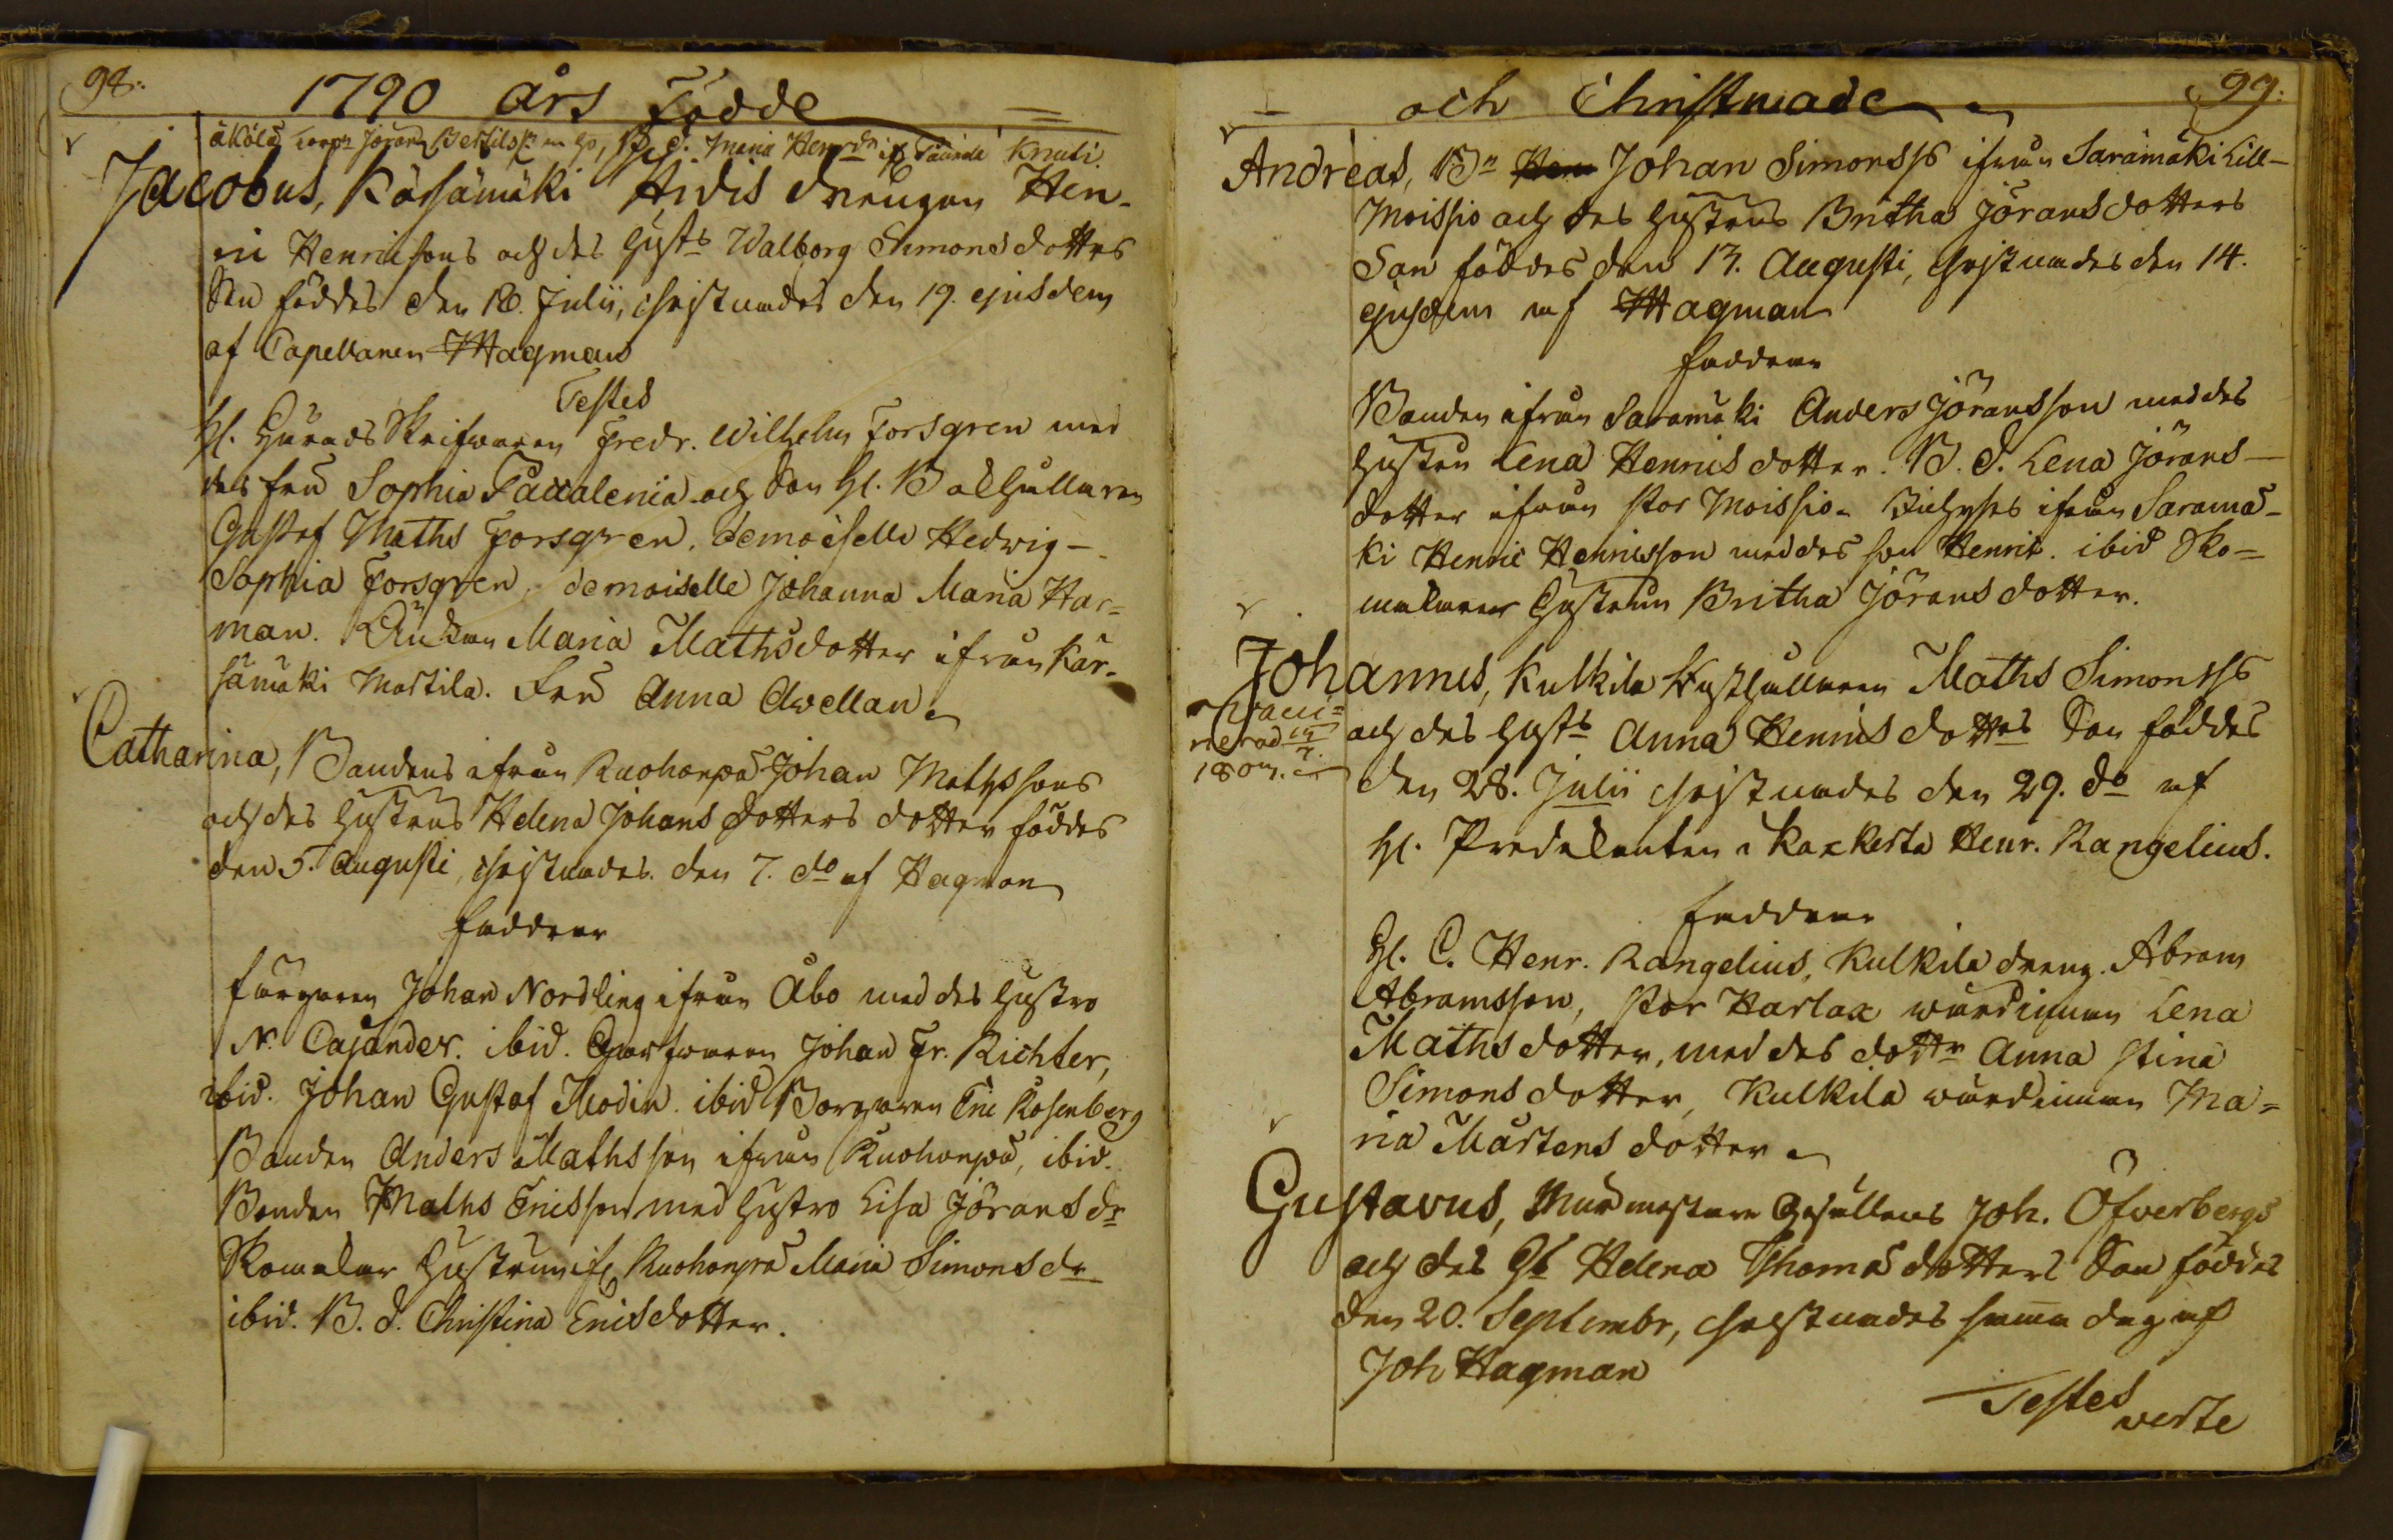 98.
1790 års Födde
åkola torp: Jöran Bertilss: m ho, B. d. Maria Henrdr if Tåinda Knuti
Jacobus, Kärsämäki Hidis drengen Hen-
ric Henricsons och des hust: Walborg Simonsdotters
Son föddes den 18. Julii, christnades den 19. ejusdem
af Capellanen Hagman
Testes
Hl. Härads Skrifwaren Fredr. Wilhelm Forsgren med
des fru Sophia och Son Hl. Bokhållaren
Gustaf Maths Forsgren. demoiselle Hedvig-
Sophia Forsgren. demoiselle Johanna Maria Har=
man. Enkan Maria Mathsdotter ifrån Kär-
sämäki Martila. Fru Anna Avellan
Catharina, Bondens ifrån Ruohonpä Johan Mathssons
och des hustrus Helena Johansdotters dotter föddes
den 5. Augusti, christnades den 7. do af Hagman
Faddrar
Färgaren Johan Nordling ifrån Åbo med des hustro
N. Cajander. ibid. Garfwaren Johan Fr. Richter,
ibid. Johan Gustaf Modin. ibid Borgaren Eric Rosenberg
Bonden Anders Mathsson ifrån Ruohonpä, ibid.
Bonden Maths Ericsson med hustro Lisa Jöransdr
Skomakar hustrun if Ruohonpä Maria Simonsdr
ibid. B. d. Christina Ericsdotter.
och Christnade
99.
Andreas, Bn Johan Simonss ifrån Saramäki Lill-
Moissio och des hustrus Britha Jöransdotters
Son föddes den 13. Augusti, christnades den 14.
ejusdem af Hagman
Faddrar
Bonden ifrån Saramäki Anders Jöransson med des
hustru Lena Henricsdotter. B. d. Lena Jörans-
dotter ifrån Stor Moissio. ifrån Saramä-
ki Henric Henricsson med des son Henric. ibid Sko=
makaren hustrun Britha Jöransdotter.
Johannes, Kulkila Maths Simonss
och des hust: Anna Henricsdotters Son föddes
den 28. Julii christnades den 29. do af
Hl. Predikanten i Kakkerta Henr. Rangelius.
Vacci=
nerad 19/7.
1804.
Faddrar
Hl. C. Henr. Rangelius, Kulkila dreng. Abram
Abramsson, Stor Harlax wärdinnan Lena
Mathsdotter, med des dottr Anna Stina
Simonsdotter, Kulkila wärdinnan Ma=
ria Mårtensdotter
Gustavus, Murmästare Gesällens Joh. Öfverbergs
och des H: Helena Thomasdotters Son föddes
den 20. Septembr, christnades samma dag af
Joh Hagman
Testes
verte